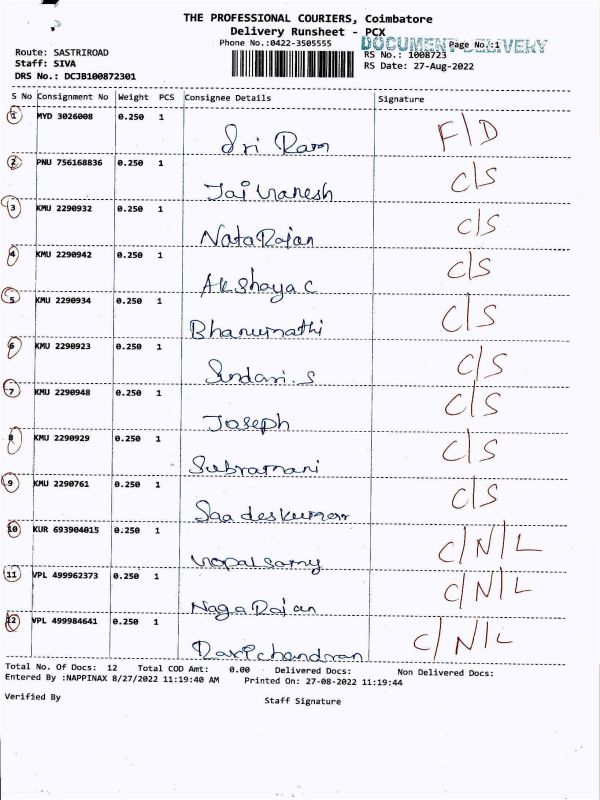 THE PROFESSIONAL COURIERS, Coimbatore
Delivery Runsheet - PCX
Phone No.:0422-3505555
DOCUMENT DELIVERY
Page No.:1
Route: SASTRIROAD
RS No.: 1008723
Staff: SIVA
RS Date: 27-Aug-2022
DRS No.: DCJB100872301
S No Consignment No Weight PCS Consignee Details Signature
1 MYD 3026008 0.250 1 Sri Ram F/D
2 PNU 756168836 0.250 1 Jai Ganesh C/S
3 KMU 2290932 0.250 1 NataRajan C/S
4 KMU 2290942 0.250 1 Akshaya C C/S
5 KMU 2290934 0.250 1 Bhanumathi C/S
6 KMU 2290923 0.250 1 Sundari.S C/S
7 KMU 2290948 0.250 1 Joseph C/S
8 KMU 2290929 0.250 1 Subramani C/S
9 KMU 2290761 0.250 1 C/S
10 KUR 693904015 0.250 1 Gopalsamy C/N/L
11 VPL 499962373 0.250 1 NagaRajan C/N/L
12 VPL 499984641 0.250 1 Ravichandran C/N/L
Total No. Of Docs: 12 Total COD Amt: 0.00 Delivered Docs: Non Delivered Docs:
Entered By :NAPPINAX 8/27/2022 11:19:40 AM Printed On: 27-08-2022 11:19:44
Verified By Staff Signature